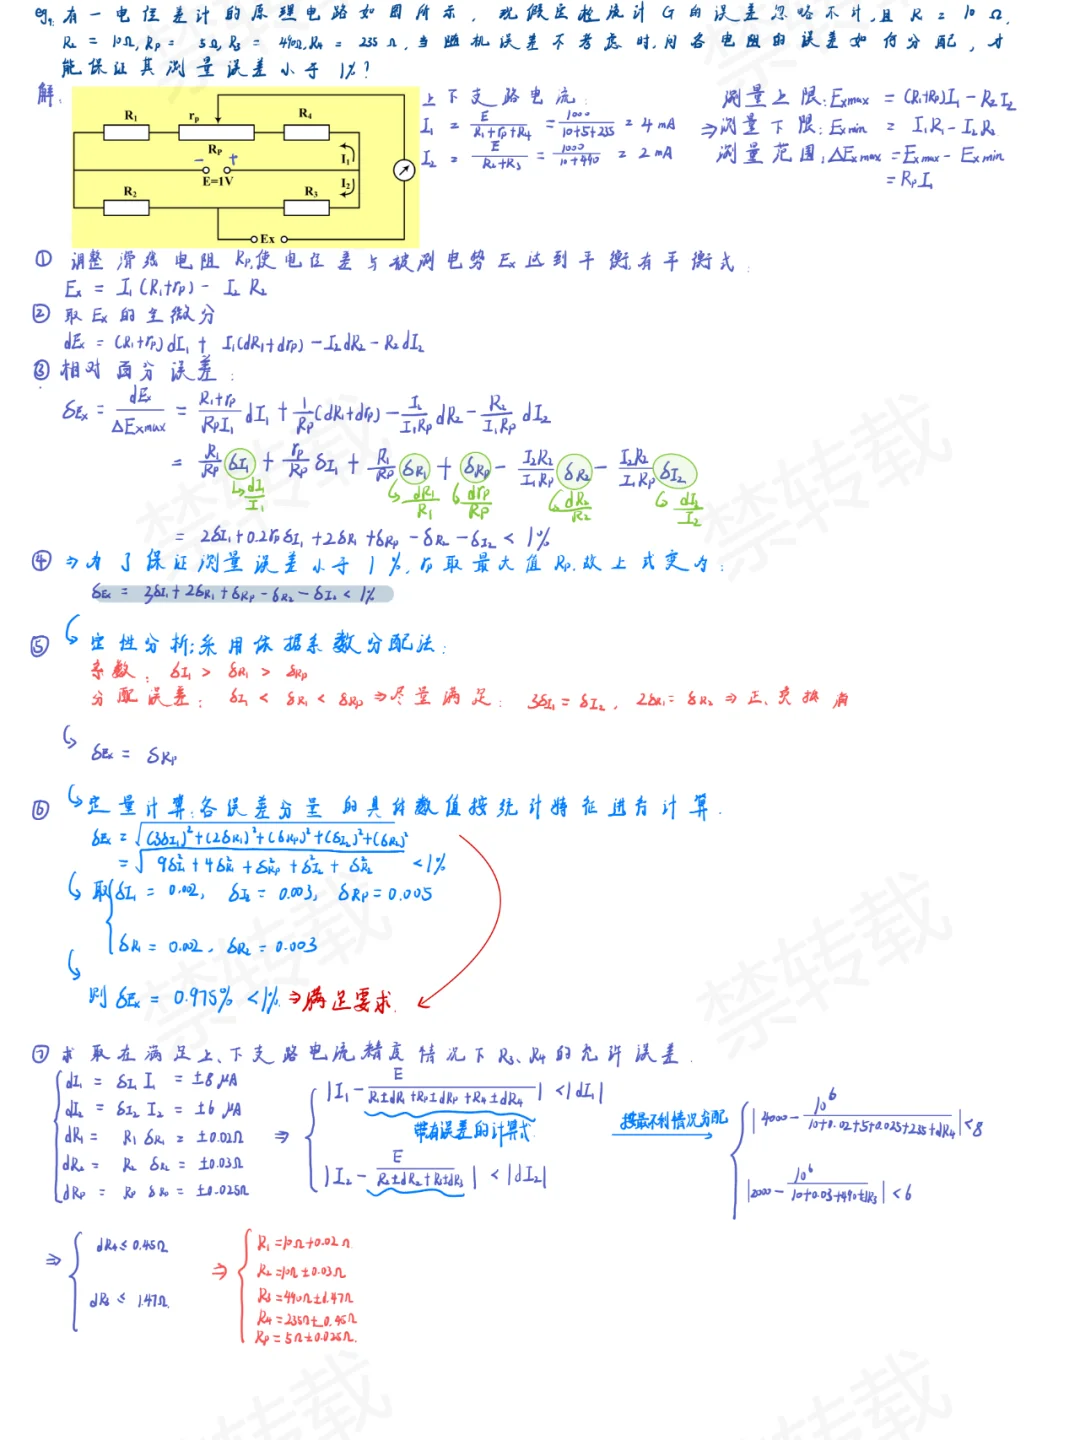 eg1. 有一电位差计的原理电路如图所示, 现假定检流计G的误差忽略不计,且 R = 10Ω,
R2 = 10Ω, Rp = 5Ω, R3 = 490Ω, R4 = 235Ω, 当随机误差不考虑时,问各电阻的误差如何分配,才
能保证其测量误差小于1%?
解:
R1 rp R4
Rp
I1
− +
E=1V
I2
R2 R3
Ex
上下支路电流:
I1 = E/(R1+rp+R4) = 1000/(10+5+235) = 4mA
I2 = E/(R2+R3) = 1000/(10+490) = 2mA
测量上限: Exmax = (R1+Rp)I1 − R2I2
⇒测量下限: Exmin = I1R1 − I2R2
测量范围: ΔExmax = Exmax − Exmin
= RpI1
① 调整滑线电阻 Rp,使电位差与被测电势 Ex 达到平衡,有平衡式:
Ex = I1(R1+rp) − I2R2
② 取Ex的全微分
dEx = (R1+rp)dI1 + I1(dR1+drp) − I2dR2 − R2dI2
③ 相对百分误差:
δEx = dEx/ΔExmax = (R1+rp)/(RpI1) dI1 + 1/Rp (dR1+drp) − I2/(I1Rp) dR2 − R2/(I1Rp) dI2
= R1/Rp δI1 + rp/Rp δI1 + R1/Rp δR1 + δRp − I2R2/(I1Rp) δR2 − I2R2/(I1Rp) δI2
↳ dI1/I1 ↳ dR1/R1 ↳ drp/Rp ↳ dR2/R2 ↳ dI2/I2
= 2δI1 + 0.2rpδI1 + 2δR1 + δRp − δR2 − δI2 < 1%
④ ⇒ 为了保证测量误差小于1%, rp取最大值Rp,故上式变为:
δEx = 3δI1 + 2δR1 + δRp − δR2 − δI2 < 1%
⑤ 定性分析:采用依据系数分配法:
系数: δI1 > δR1 > δRp
分配误差: δI1 < δR1 < δRp ⇒ 尽量满足: 3δI1 = δI2, 2δR1 = δR2 ⇒ 正、负抵消
δEx = δRp
⑥ 定量计算:各误差分量的具体数值按统计特征进行计算.
δEx = √((3δI1)²+(2δR1)²+(δRp)²+(δI2)²+(δR2)²)
= √(9δI1²+4δR1²+δRp²+δI2²+δR2²) < 1%
取 δI1 = 0.002, δI2 = 0.003, δRp = 0.005
δR1 = 0.002, δR2 = 0.003
则 δEx = 0.975% < 1% ⇒ 满足要求.
⑦ 求取在满足上、下支路电流精度情况下R3、R4的允许误差.
dI1 = δI1 I1 = ±8μA
dI2 = δI2 I2 = ±6μA
dR1 = R1 δR1 = ±0.02Ω
dR2 = R2 δR2 = ±0.03Ω
dRp = Rp δRp = ±0.025Ω
⇒
|I1 − E/(R1±dR1+Rp±dRp+R4±dR4)| < |dI1|
带有误差的计算式
|I2 − E/(R2±dR2+R3±dR3)| < |dI2|
按最不利情况分配
|4000 − 10⁶/(10+0.02+5+0.025+235+dR4)| < 8
|2000 − 10⁶/(10+0.03+490±dR3)| < 6
⇒ dR4 ≤ 0.45Ω
dR3 ≤ 1.47Ω.
⇒ R1 = 10Ω±0.02Ω
R2 = 10Ω±0.03Ω
R3 = 490Ω±1.47Ω
R4 = 235Ω±0.45Ω
Rp = 5Ω±0.025Ω.
禁转载
禁转载
禁转载
禁转载
禁转载
禁转载